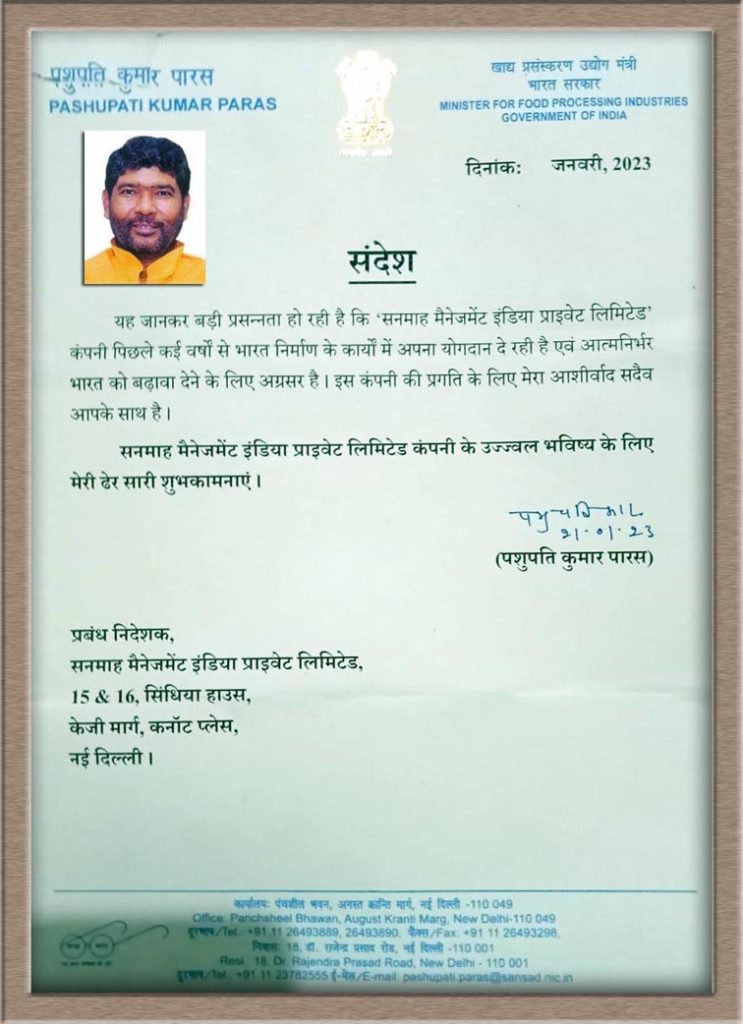 पशुपति कुमार पारस
PASHUPATI KUMAR PARAS
खाद्य प्रसंस्करण उद्योग मंत्री
भारत सरकार
MINISTER FOR FOOD PROCESSING INDUSTRIES
GOVERNMENT OF INDIA
दिनांक: जनवरी, 2023
संदेश
यह जानकर बड़ी प्रसन्नता हो रही है कि ‘सनमाह मैनेजमेंट इंडिया प्राइवेट लिमिटेड’
कंपनी पिछले कई वर्षों से भारत निर्माण के कार्यों में अपना योगदान दे रही है एवं आत्मनिर्भर
भारत को बढ़ावा देने के लिए अग्रसर है। इस कंपनी की प्रगति के लिए मेरा आशीर्वाद सदैव
आपके साथ है।
सनमाह मैनेजमेंट इंडिया प्राइवेट लिमिटेड कंपनी के उज्ज्वल भविष्य के लिए
मेरी ढेर सारी शुभकामनाएं।
21.01.23
(पशुपति कुमार पारस)
प्रबंध निदेशक,
सनमाह मैनेजमेंट इंडिया प्राइवेट लिमिटेड,
15 & 16, सिंधिया हाउस,
केजी मार्ग, कनॉट प्लेस,
नई दिल्ली।
कार्यालय: पंचशील भवन, अगस्त क्रान्ति मार्ग, नई दिल्ली -110 049
Office: Panchsheel Bhawan, August Kranti Marg, New Delhi-110 049
दूरभाष/Tel.: +91 11 26493889, 26493890, फैक्स/Fax: +91 11 26493298,
निवास: 18, डॉ. राजेन्द्र प्रसाद रोड, नई दिल्ली -110 001
Resi.: 18, Dr. Rajendra Prasad Road, New Delhi - 110 001
दूरभाष/Tel.: +91 11 23782555 ई-मेल/E-mail: pashupati.paras@sansad.nic.in